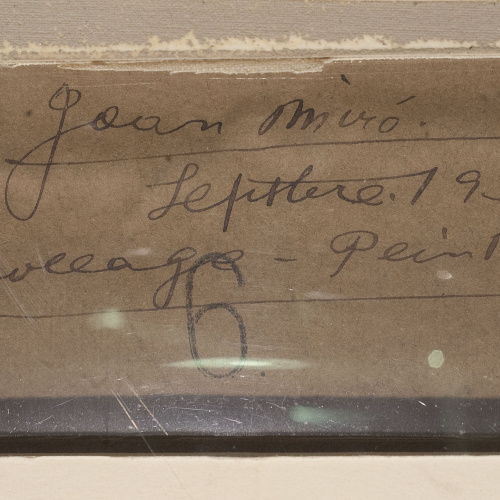 Joan Miró.
Septbre. 19
collage - Peint
6.